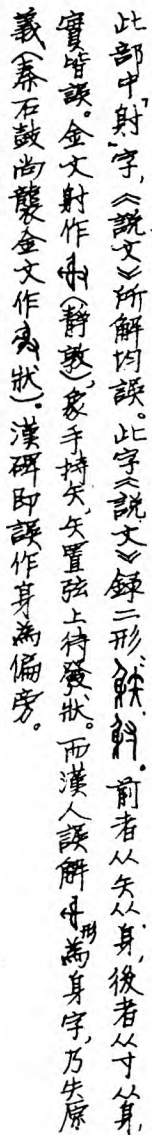 此部中「射」字，《說文》所解均誤。此字《說文》錄二形：䠶、射。前者从矢从身，後者从寸从身，
實皆誤。金文射作（靜敦），象手持矢，矢置弦上待發狀。而漢人誤解形為身字，乃失原
義（秦石鼓尚襲金文作狀）。漢碑即誤作身為偏旁。